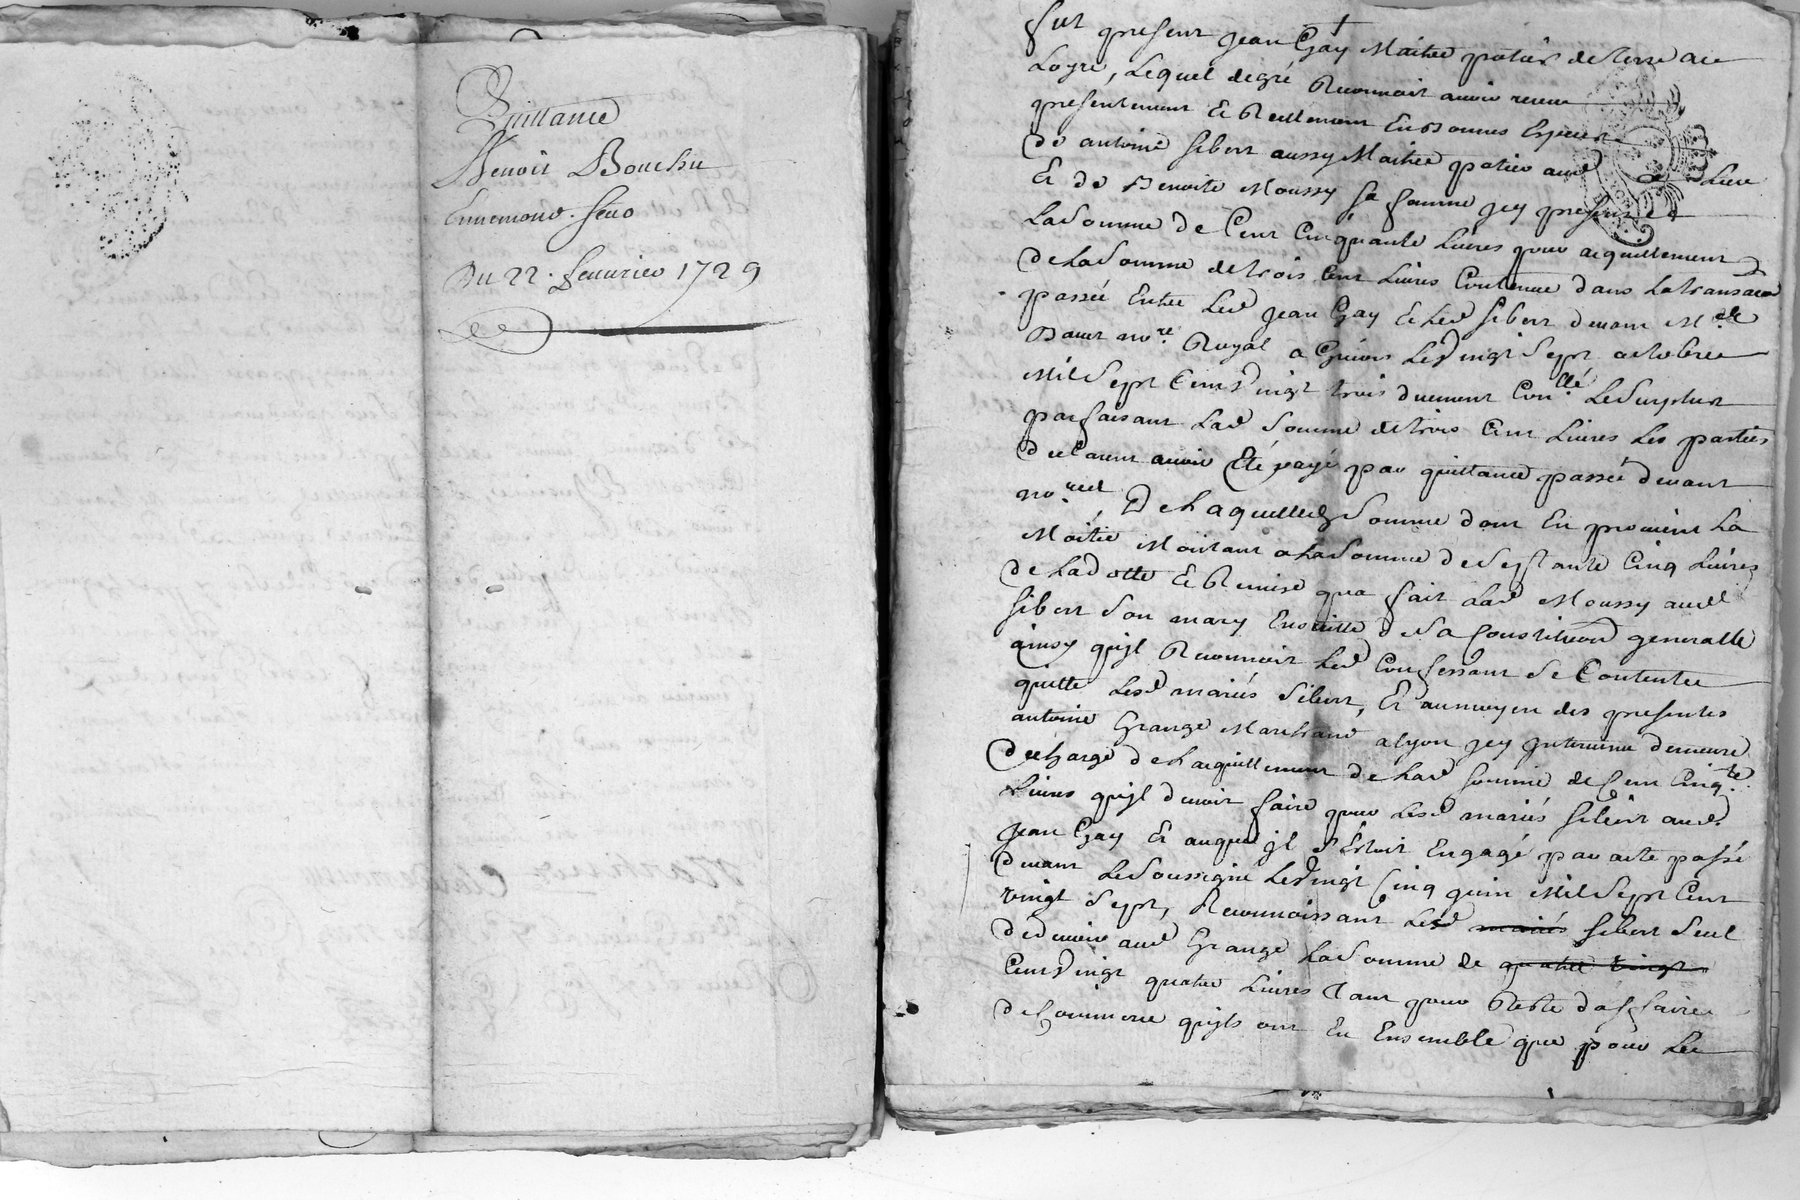 Quittance
Benoit Bouchu
Ennemond feuo
Du 22. feuurier 1729
fut present jean Gay Maitre potier de terre au
Loyre, Lequel de gré Reconnoit auoir receu
presentement & Reellement En Bonnes Especes
de antoine sibert aussy Maitre potier aud
Et de Benoite Moussy sa femme jcy presents
La somme de Cent Cinquante Liures pour acquittement
de la Somme de trois Cent Liures Contenue dans la transaon
passée Entre Led jean Gay & Led sibert deuant Me
nore Royal a Giuors Le Vingt Sept octobre
Mil Sept Cent Vingt trois duement Conllé Le Surplus
parfaisant Lad Somme de trois Cent Liures Les parties
declarent auoir Eté payé par quittance passée deuant
nored De Laquelle Somme dont En prouient La
Moitie Montant a La Somme de Septante Cinq Liures
de La dotte & Remise qua fait Lad Moussy aud
sibert Son mary Ensuitte de sa Constitution generalle
ainsy quil Reconnoit Led Confessant Se Contenter
quitte Lesd mariés Sibert, Et au moyen des presentes
antoine Grange Marchand a lyon jcy jnteruenu demeure
decharge de Lacquittement de Lad somme de Cent Cinqte
Liures quil deuoit faire pour Lesd mariés sibert aud
jean Gay Et auquel jl s'Estoit Engagé par acte passé
deuant Le Soussigné Le Vingt Cinq juin Mil Sept Cent
vingt Sept, Reconnoissant Led mariés sibert Seul
de deuoir aud Grange La Somme de quatre vingt
Cent Vingt quatre Liures Tant pour Reste d'affaire
de Commerce quils ont Eu Ensemble que pour Les